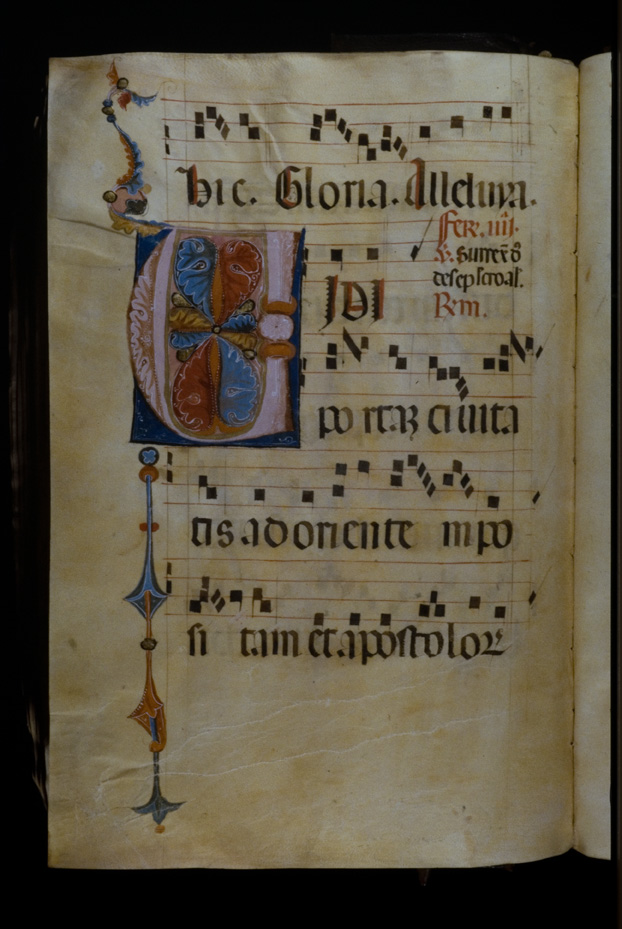 hic. Gloria. Alleluya.
Fer. iiij.
V. Surrex̄ d̄
de sepłcro al̄.
Rm.
VIDI
portaꝝ ciuita
tis ad oriente m po
si tam et apostoloꝝ